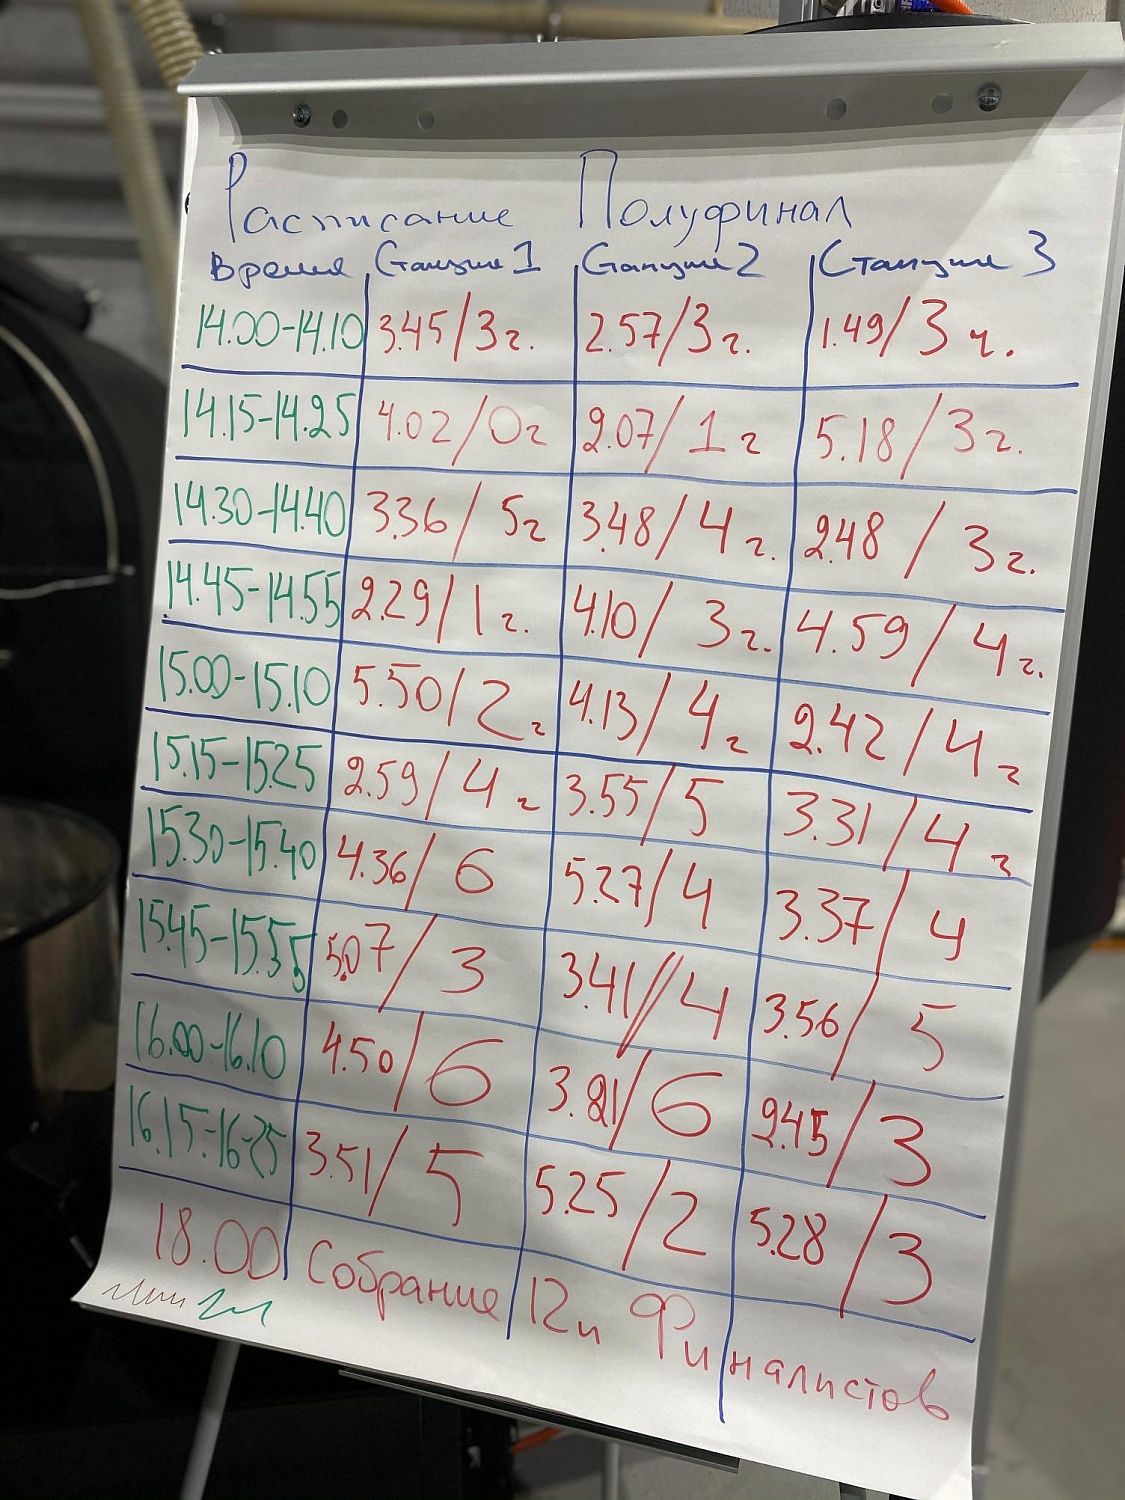 Расписание Полуфинал
Время Станция 1 Станция 2 Станция 3
14.00-14.10 3.45/3г. 2.57/3г. 1.49/3ч.
14.15-14.25 4.02/0г 2.07/1г 5.18/3г.
14.30-14.40 3.36/5г 3.48/4г. 2.48/3г.
14.45-14.55 2.29/1г. 4.10/3г. 4.59/4г.
15.00-15.10 5.50/2г 4.13/4г 2.42/4г
15.15-15.25 2.59/4г 3.55/5 3.31/4г
15.30-15.40 4.36/6 5.27/4 3.37/4
15.45-15.55 5.07/3 3.41//4 3.56/5
16.00-16.10 4.50/6 3.21/6 2.45/3
16.15-16-25 3.51/5 5.25/2 5.28/3
18.00 Собрание 12и Финалистов